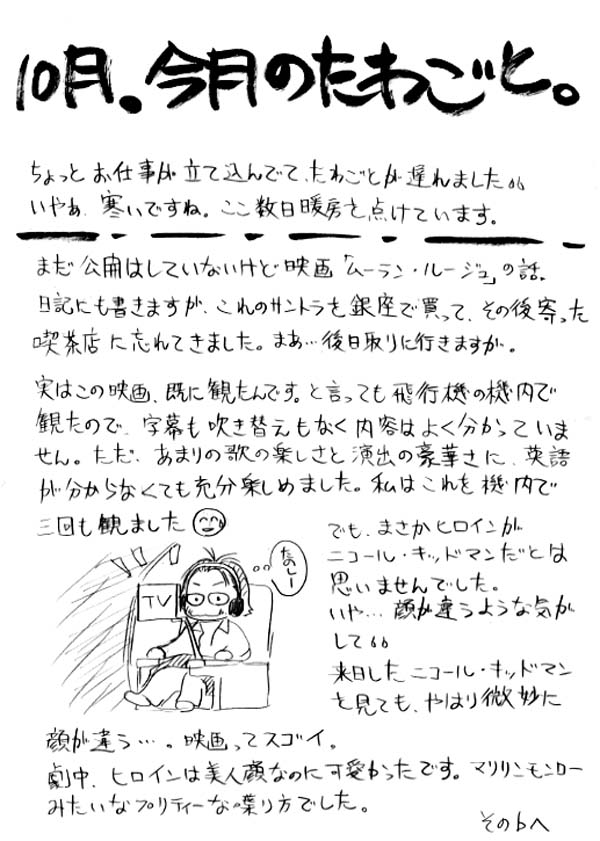 10月。今月のたわごと。
ちょっとお仕事が立て込んでて、たわごとが遅れました。。
いやぁ、寒いですね。ここ数日暖房を点けています。
まだ公開はしていないけど映画「ムーラン・ルージュ」の話。
日記にも書きますが、これのサントラを銀座で買って、その後寄った
喫茶店に忘れてきました。まぁ…後日取りに行きますが。
実はこの映画、既に観たんです。と言っても飛行機の機内で
観たので、字幕も吹き替えもなく内容はよく分かっていま
せん。ただ、あまりの歌の楽しさと演出の豪華さに、英語
が分からなくても充分楽しめました。私はこれを機内で
三回も観ました
たのしー
TV
でも、まさかヒロインが
ニコール・キッドマンだとは
思いませんでした。
いや…顔が違うような気が
して。。
来日したニコール・キッドマン
を見ても、やはり微妙に
顔が違う…。映画ってスゴイ。
劇中、ヒロインは美人顔なのに可愛かったです。マリリンモンロー
みたいなプリティーな喋り方でした。
そのbへ